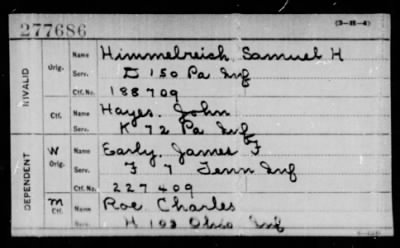 (3-H-4)
277686
INVALID
Orig.
Name Himmelreich Samuel H
Serv. I 150 Pa Inf
Ctf. No. 188709
Ctf.
Name Hayes. John
Serv. K 72 Pa Inf
DEPENDENT
W
Orig.
Name Early. James F
Serv. F 7 Tenn Inf
Ctf. No. 227409
m
Ctf.
Name Roe Charles
Serv. H 102 Ohio Inf